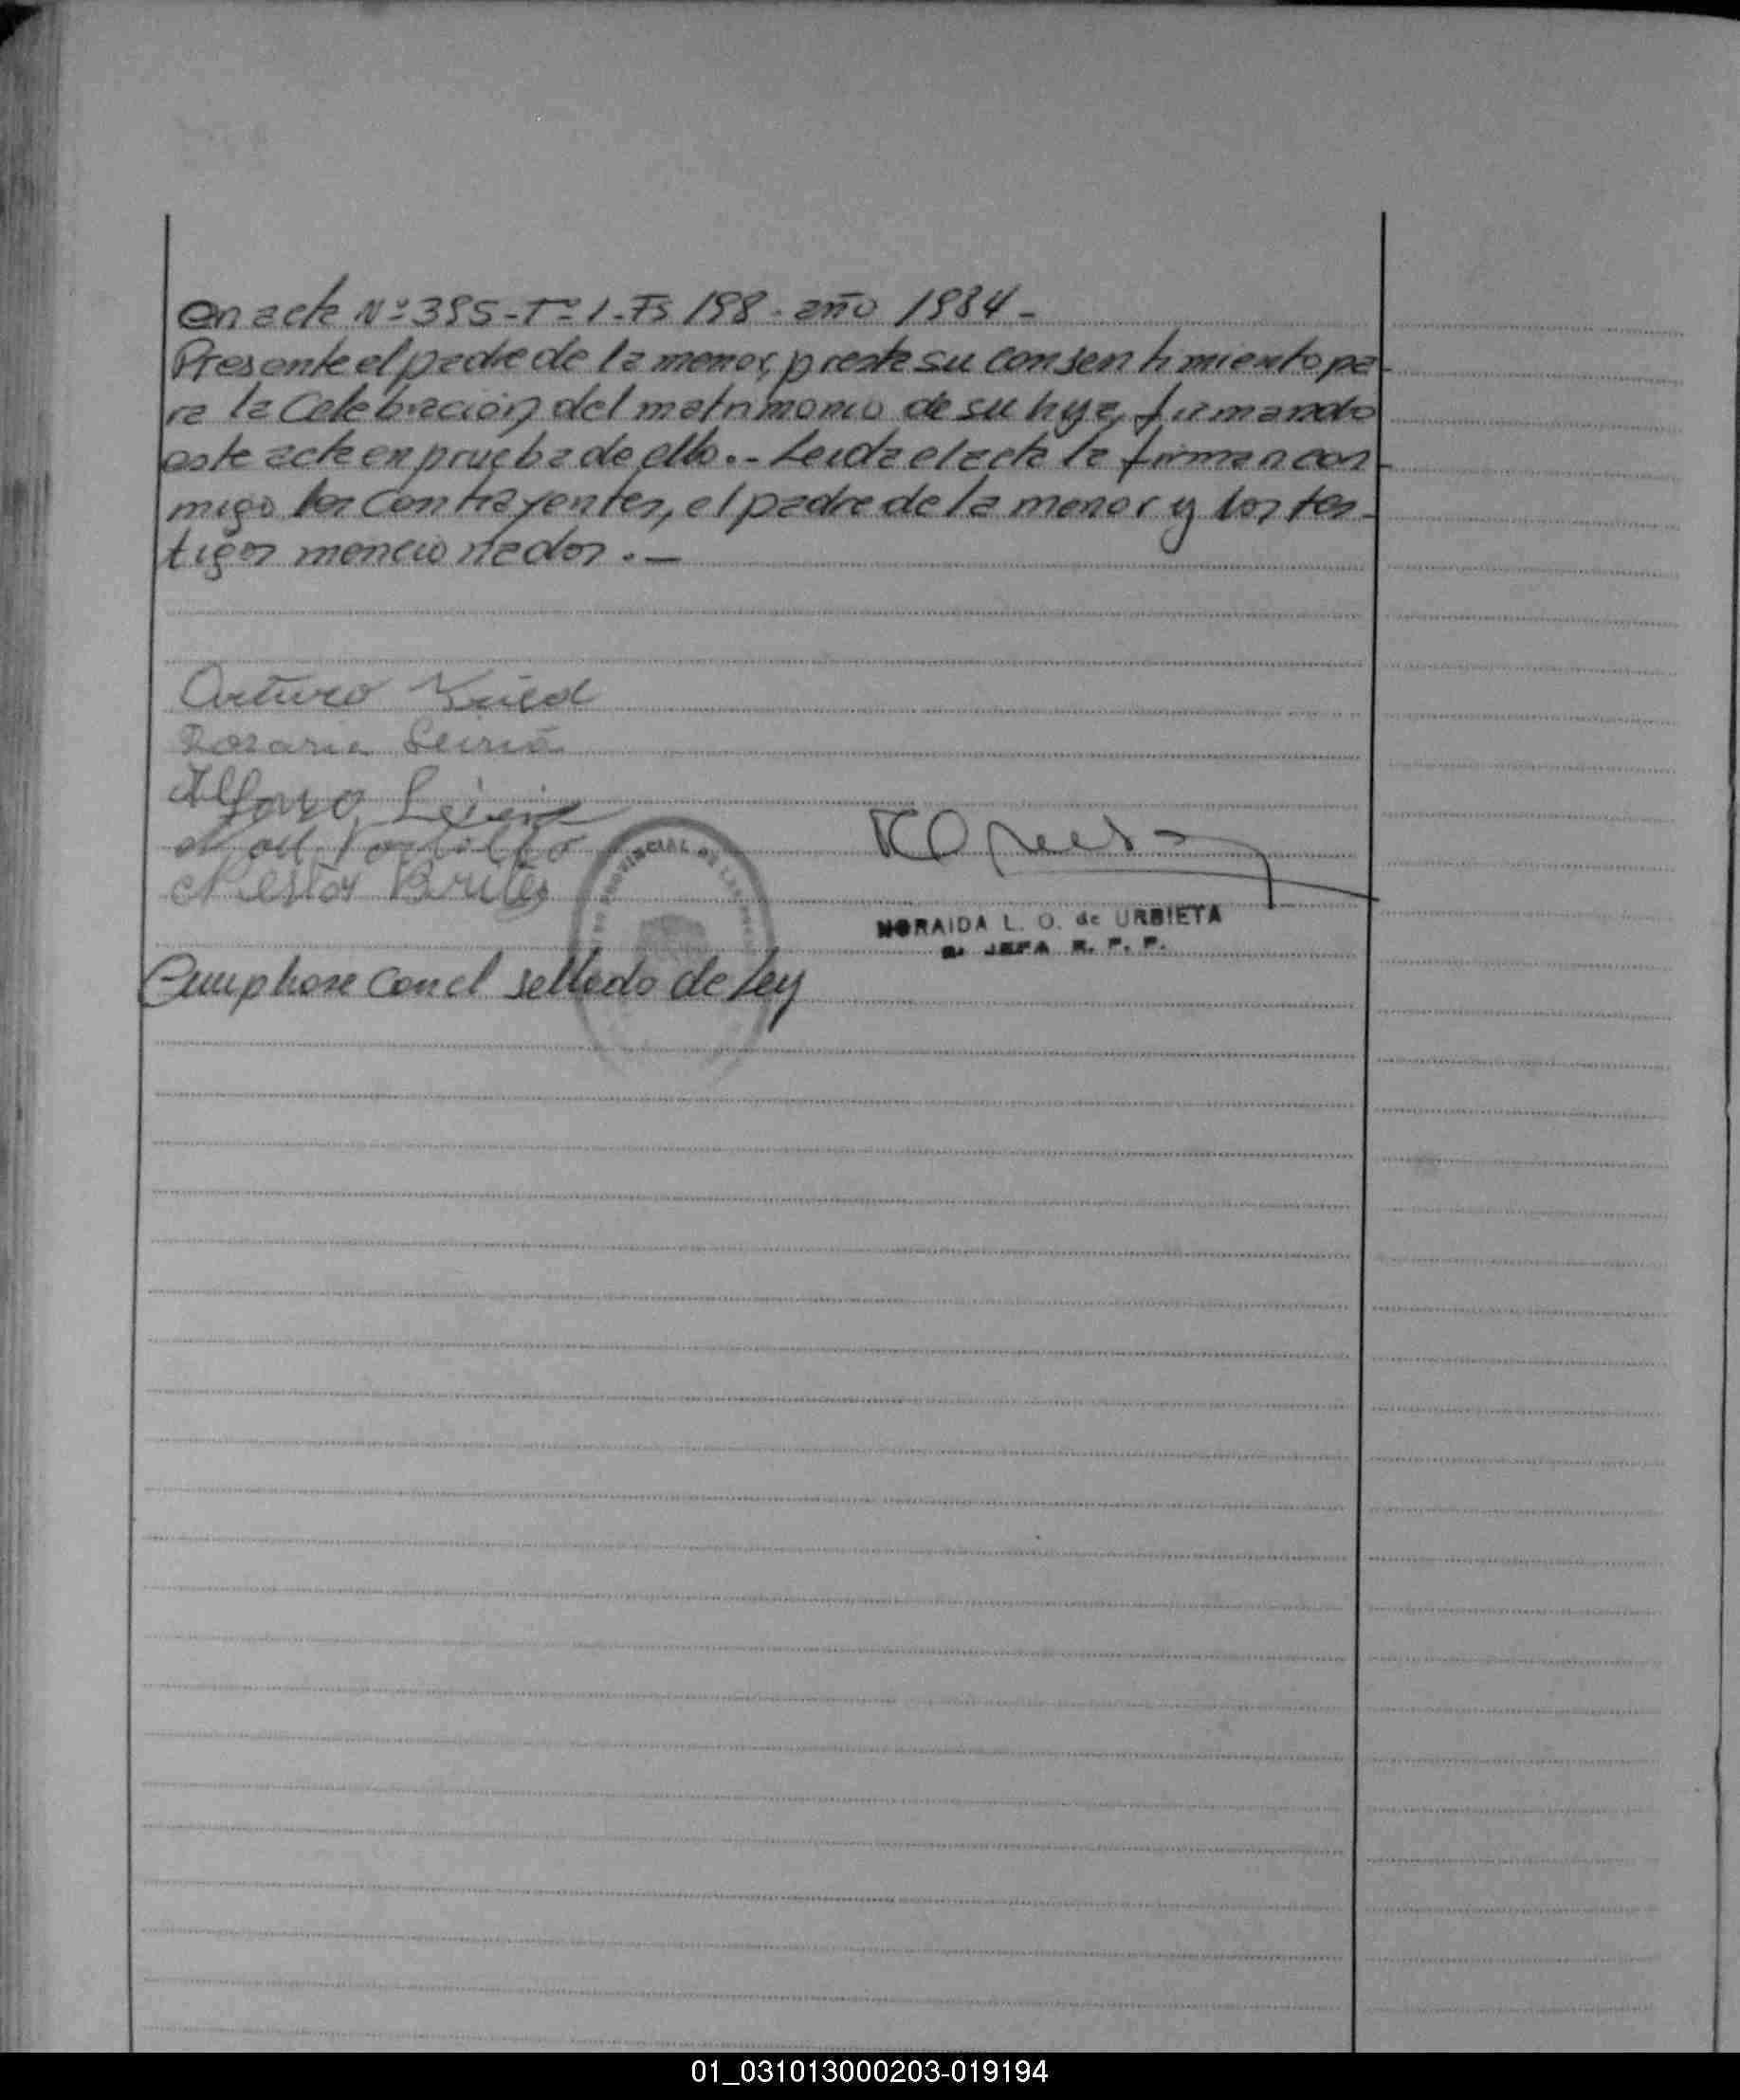 en acta Nº 395-Tº 1-Fs 198. año 1984-
Presente el padre de la menor, presta su consentimiento pa-
ra la Celebración del matrimonio de su hija, firmando
este acta en prueba de ello.- Leida el acta la firman con-
migo los contrayentes, el padre de la menor y los tes-
tigos mencionados.-
Arturo
Alfonso
Portillo
Nestor Britez
PROVINCIAL DE LAS
NORAIDA L. O. de URBIETA
JEFA R. P. P.
Cumpliose con el sellado de Ley
01_031013000203-019194